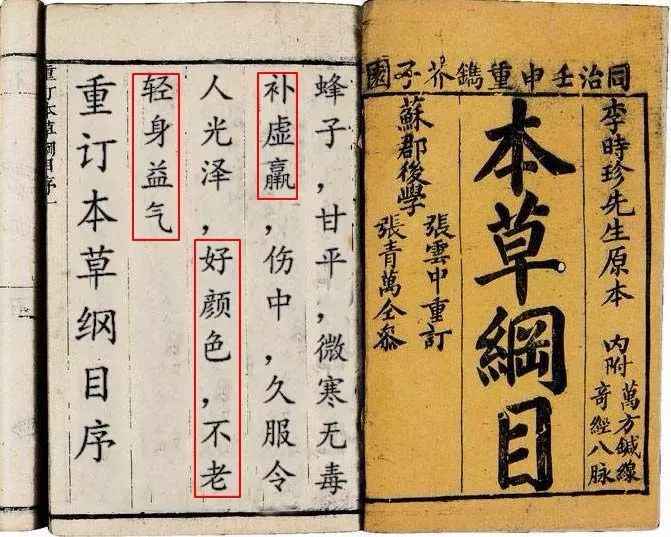 同治壬申重鐫芥子園
李時珍先生原本
內附萬方鍼線
奇經八脉
本草綱目
蘇郡後學
張雲中重訂
張青萬仝參
蜂子，甘平，微寒无毒
补虚羸，伤中，久服令
人光泽，好颜色，不老
轻身益气
重订本草纲目序